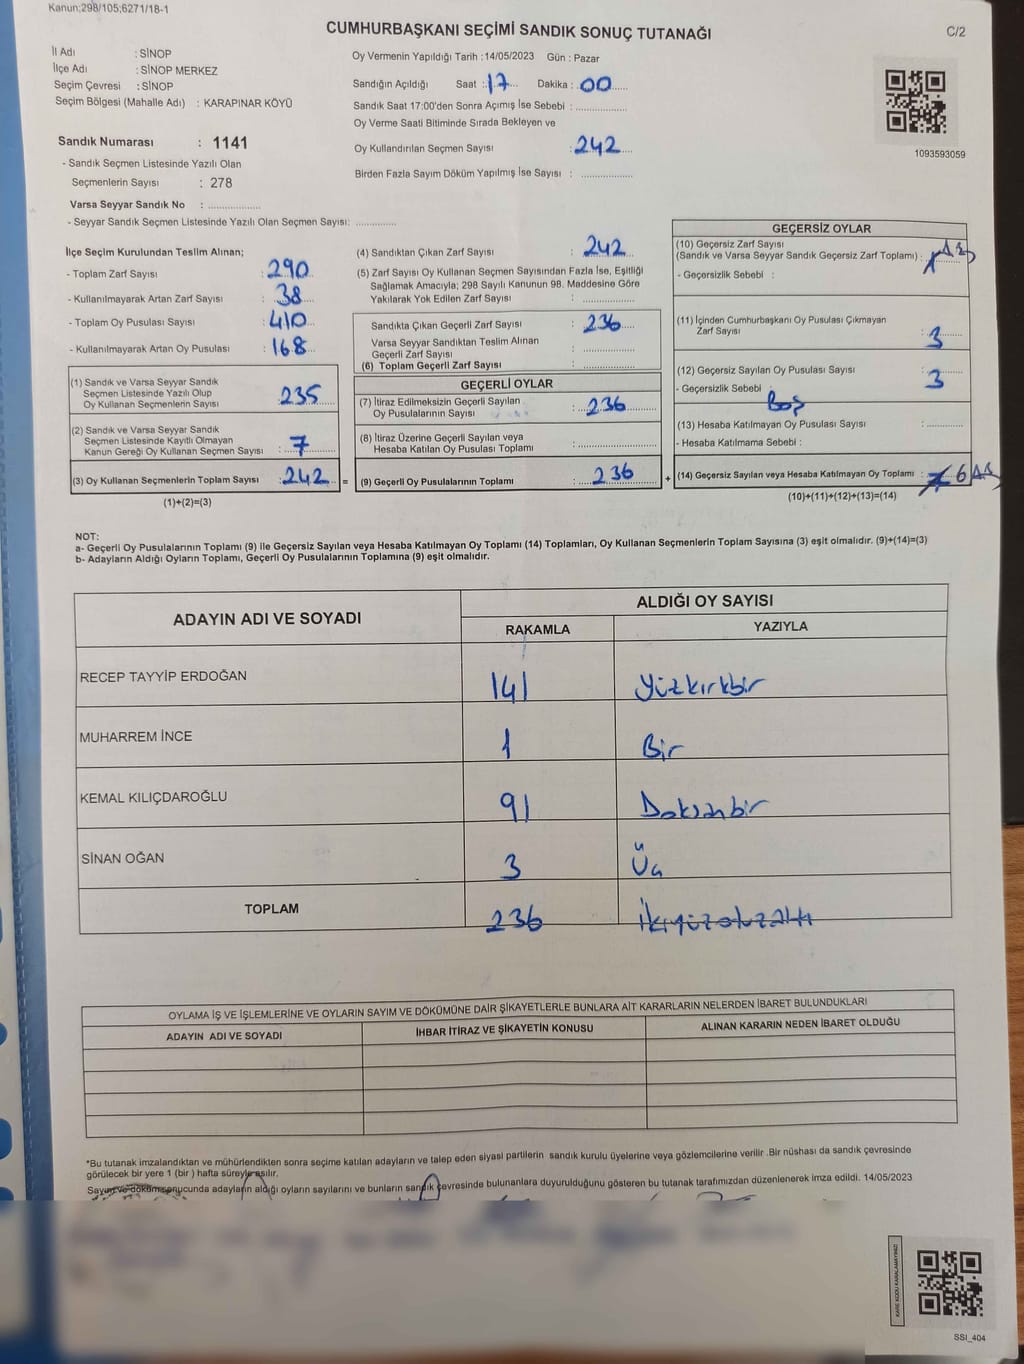 Kanun;298/105;6271/18-1
CUMHURBAŞKANI SEÇİMİ SANDIK SONUÇ TUTANAĞI
C/2
İl Adı : SİNOP
İlçe Adı : SİNOP MERKEZ
Seçim Çevresi : SİNOP
Seçim Bölgesi (Mahalle Adı) : KARAPINAR KÖYÜ
Oy Vermenin Yapıldığı Tarih :14/05/2023 Gün : Pazar
Sandığın Açıldığı Saat : 17 Dakika : 00
Sandık Saat 17:00'den Sonra Açımış İse Sebebi :
Oy Verme Saati Bitiminde Sırada Bekleyen ve
Oy Kullandırılan Seçmen Sayısı : 242
Birden Fazla Sayım Döküm Yapılmış İse Sayısı :
1093593059
Sandık Numarası : 1141
- Sandık Seçmen Listesinde Yazılı Olan
Seçmenlerin Sayısı : 278
Varsa Seyyar Sandık No :
- Seyyar Sandık Seçmen Listesinde Yazılı Olan Seçmen Sayısı:
İlçe Seçim Kurulundan Teslim Alınan;
- Toplam Zarf Sayısı : 290
- Kullanılmayarak Artan Zarf Sayısı : 38
- Toplam Oy Pusulası Sayısı : 410
- Kullanılmayarak Artan Oy Pusulası : 168
(1) Sandık ve Varsa Seyyar Sandık
Seçmen Listesinde Yazılı Olup
Oy Kullanan Seçmenlerin Sayısı : 235
(2) Sandık ve Varsa Seyyar Sandık
Seçmen Listesinde Kayıtlı Olmayan
Kanun Gereği Oy Kullanan Seçmen Sayısı : 7
(3) Oy Kullanan Seçmenlerin Toplam Sayısı : 242 =
(1)+(2)=(3)
(4) Sandıktan Çıkan Zarf Sayısı : 242
(5) Zarf Sayısı Oy Kullanan Seçmen Sayısından Fazla İse, Eşitliği
Sağlamak Amacıyla; 298 Sayılı Kanunun 98. Maddesine Göre
Yakılarak Yok Edilen Zarf Sayısı :
Sandıkta Çıkan Geçerli Zarf Sayısı : 236
Varsa Seyyar Sandıktan Teslim Alınan
Geçerli Zarf Sayısı :
(6) Toplam Geçerli Zarf Sayısı :
GEÇERLİ OYLAR
(7) İtiraz Edilmeksizin Geçerli Sayılan
Oy Pusulalarının Sayısı : 236
(8) İtiraz Üzerine Geçerli Sayılan veya
Hesaba Katılan Oy Pusulası Toplamı :
(9) Geçerli Oy Pusulalarının Toplamı : 236 +
GEÇERSİZ OYLAR
(10) Geçersiz Zarf Sayısı
(Sandık ve Varsa Seyyar Sandık Geçersiz Zarf Toplamı) :
- Geçersizlik Sebebi :
(11) İçinden Cumhurbaşkanı Oy Pusulası Çıkmayan
Zarf Sayısı : 3
(12) Geçersiz Sayılan Oy Pusulası Sayısı : 3
- Geçersizlik Sebebi : Boş
(13) Hesaba Katılmayan Oy Pusulası Sayısı :
- Hesaba Katılmama Sebebi :
(14) Geçersiz Sayılan veya Hesaba Katılmayan Oy Toplamı : 6
(10)+(11)+(12)+(13)=(14)
NOT:
a- Geçerli Oy Pusulalarının Toplamı (9) ile Geçersiz Sayılan veya Hesaba Katılmayan Oy Toplamı (14) Toplamları, Oy Kullanan Seçmenlerin Toplam Sayısına (3) eşit olmalıdır. (9)+(14)=(3)
b- Adayların Aldığı Oyların Toplamı, Geçerli Oy Pusulalarının Toplamına (9) eşit olmalıdır.
ADAYIN ADI VE SOYADI
ALDIĞI OY SAYISI
RAKAMLA YAZIYLA
RECEP TAYYİP ERDOĞAN 141 Yüzkırkbir
MUHARREM İNCE 1 Bir
KEMAL KILIÇDAROĞLU 91 Doksanbir
SİNAN OĞAN 3 Üç
TOPLAM 236 İkiyüzotuzaltı
OYLAMA İŞ VE İŞLEMLERİNE VE OYLARIN SAYIM VE DÖKÜMÜNE DAİR ŞİKAYETLERLE BUNLARA AİT KARARLARIN NELERDEN İBARET BULUNDUKLARI
ADAYIN ADI VE SOYADI İHBAR İTİRAZ VE ŞİKAYETİN KONUSU ALINAN KARARIN NEDEN İBARET OLDUĞU
*Bu tutanak imzalandıktan ve mühürlendikten sonra seçime katılan adayların ve talep eden siyasi partilerin sandık kurulu üyelerine veya gözlemcilerine verilir .Bir nüshası da sandık çevresinde
görülecek bir yere 1 (bir ) hafta süreyle asılır.
Sayım ve döküm sonucunda adayların aldığı oyların sayılarını ve bunların sandık çevresinde bulunanlara duyurulduğunu gösteren bu tutanak tarafımızdan düzenlenerek imza edildi. 14/05/2023
KARE KODU KARALAMAYINIZ!
SSI_404